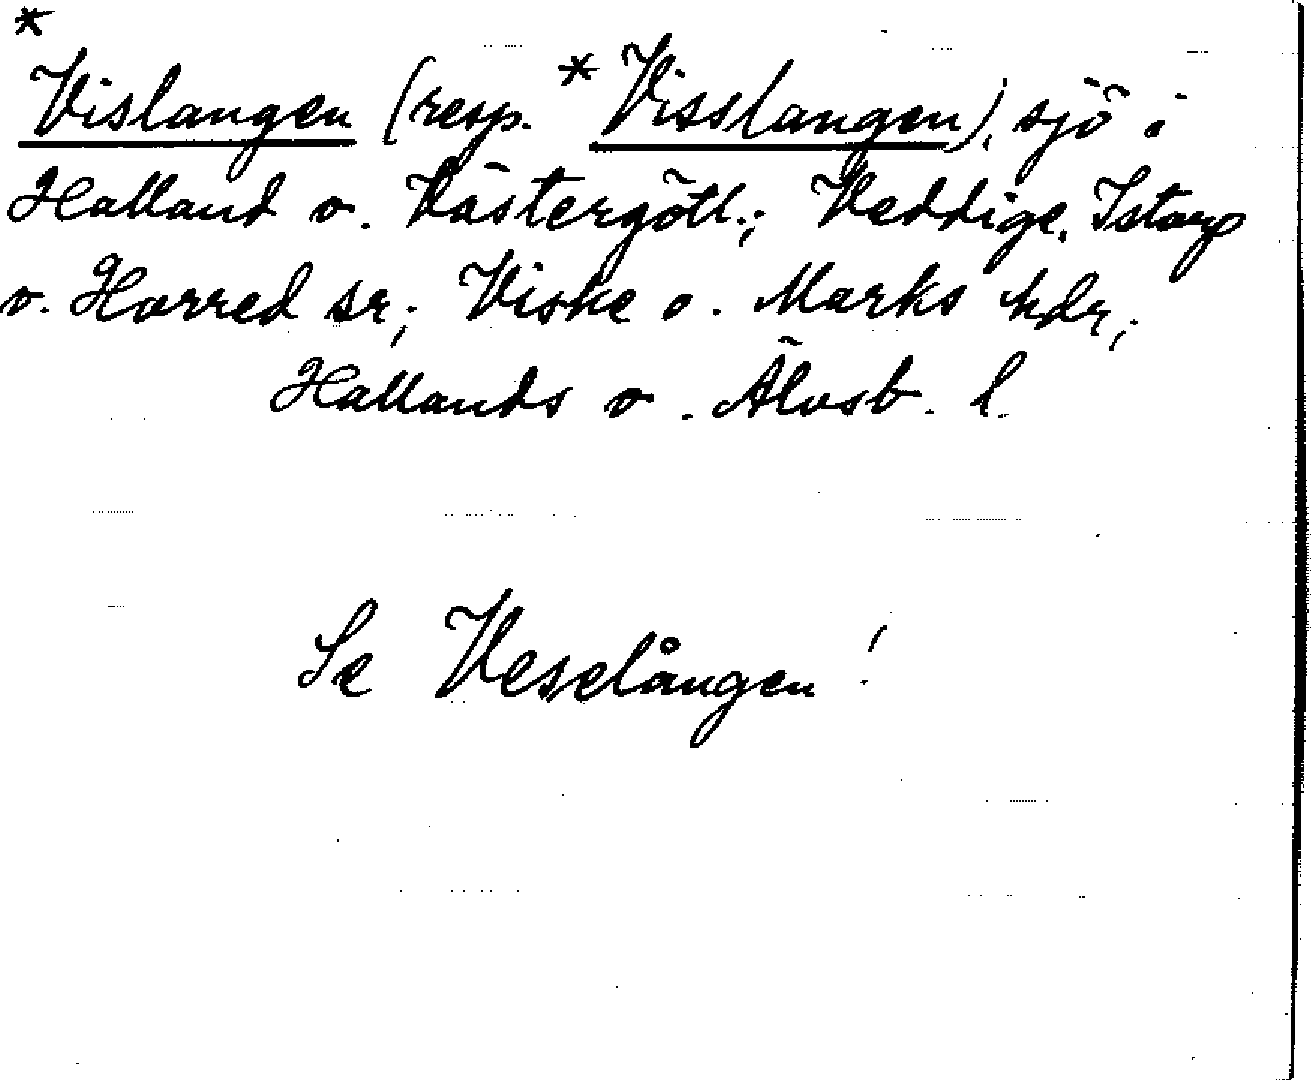 *
Vislangen (resp. *Visslangen), sjö i
Halland o. Västergötl.; Veddige, Istorp
o. Horred sr; Viske o. Marks hdr;
Hallands o. Älvsb. l.
Se Veselången!